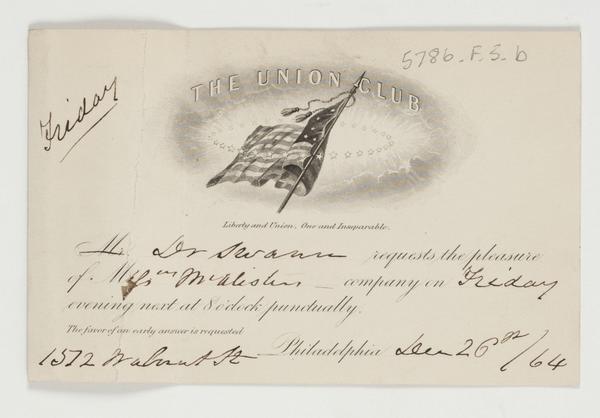 5786.F.5.b
Friday
THE UNION CLUB
Liberty and Union, One and Inseparable.
Mr Dr Swann requests the pleasure
of McAlister company on Friday
evening next at 8 o'clock punctually.
The favor of an early answer is requested
1512 Walnut St Philadelphia Dec 26th/64